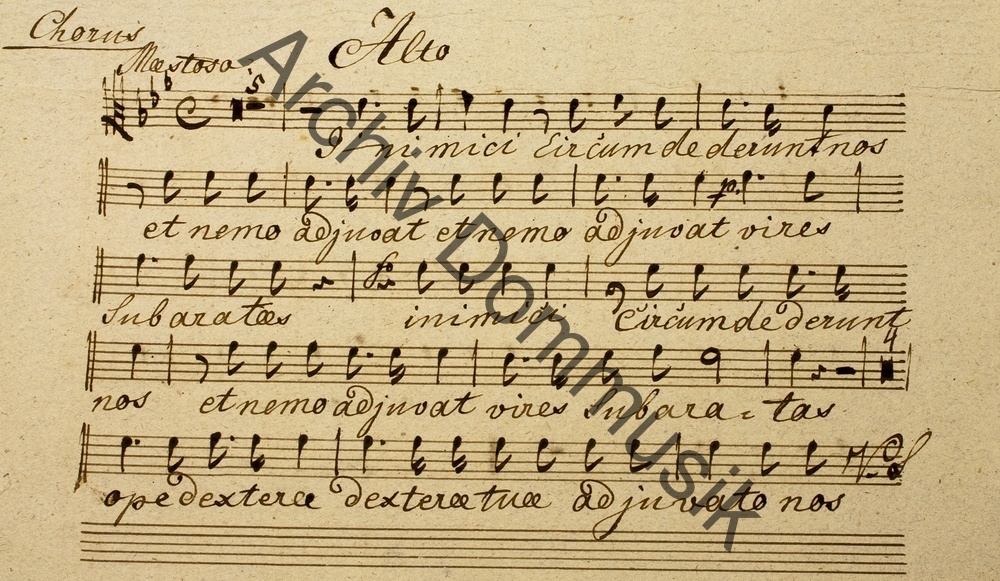 Chorus
Alto
Mæstoso
5
inimici Circumdederunt nos
et nemo adjuvat et nemo adjuvat vires
Subaratas
inimici Circumdederunt
4
nos et nemo adjuvat vires Subara-tas
ope dexteræ dexteræ tuæ adjuvato nos
V.S
Archiv Dommusik